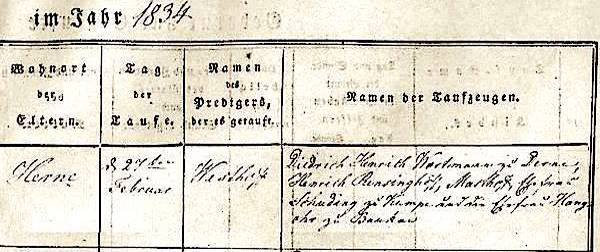 im Jahr 1834
Wohnort
der
Eltern.
Tag
der
Taufe.
Namen
des
Predigers,
der es getauft.
Namen der Taufzeugen.
Herne
d 27ten
Februar
Westhoff
Diedrich Henrich Wortmann zu Derne,
Henrich Rensinghoff, Ehefrau
Schuding zu und die Ehefrau
zu Baukau